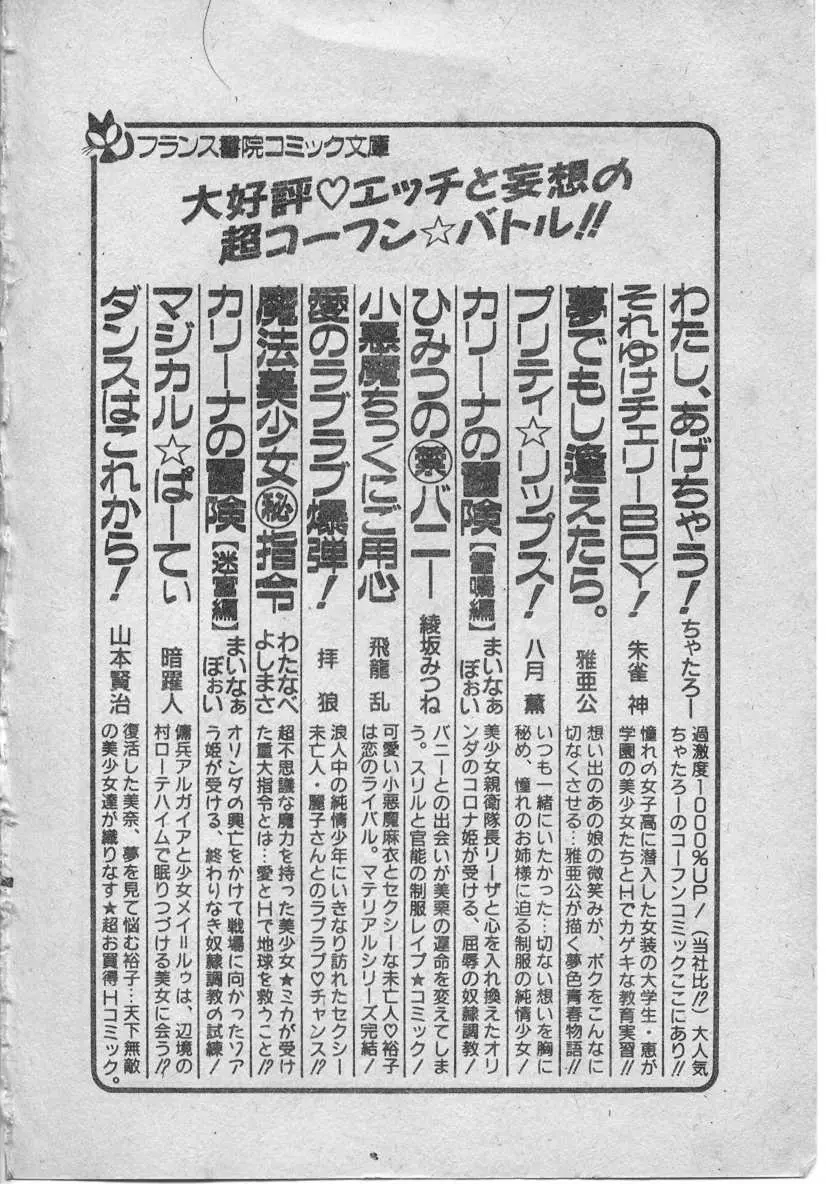 フランス書院コミック文庫
大好評♡エッチと妄想の
超コーフン☆バトル!!
わたし、あげちゃう！ ちゃたろー
過激度1000％UP！（当社比!?）大人気
ちゃたろーのコーフンコミックここにあり!!
それゆけチェリーBOY！ 朱雀 神
憧れの女子高に潜入した女装の大学生・恵が
学園の美少女たちとHでカゲキな教育実習!!
夢でもし逢えたら。 雅亜公
想い出のあの娘の微笑みが、ボクをこんなに
切なくさせる…雅亜公が描く夢色青春物語!!
プリティ☆リップス！ 八月 薫
いつも一緒にいたかった…切ない想いを胸に
秘め、憧れのお姉様に迫る制服の純情少女！
カリーナの冒険【雷鳴編】 まいなぁ ぼぉい
美少女親衛隊長リーザと心を入れ換えたオリ
ンダのコロナ姫が受ける、屈辱の奴隷調教！
ひみつの㊙バニー 綾坂みつね
バニーとの出会いが美栗の運命を変えてしま
う。スリルと官能の制服レイプ★コミック！
小悪魔ちっくにご用心 飛龍 乱
可愛い小悪魔麻衣とセクシーな未亡人♡裕子
は恋のライバル。マテリアルシリーズ完結！
愛のラブラブ爆弾！ 拝 狼
浪人中の純情少年にいきなり訪れたセクシー
未亡人・麗子さんとのラブラブ♡チャンス!?
魔法美少女㊙指令 わたなべ よしまさ
超不思議な魔力を持った美少女★ミカが受け
た重大指令とは…愛とHで地球を救うこと!?
カリーナの冒険【迷宮編】 まいなぁ ぼぉい
オリンダの興亡をかけて戦場に向かったソア
ラ姫が受ける、終わりなき奴隷調教の試練！
マジカル☆ぱーてぃ 暗躍人
傭兵アルガイアと少女メイ＝ルゥは、辺境の
村ローテハイムで眠りつづける美女に会う!?
ダンスはこれから！ 山本賢治
復活した美奈、夢を見て悩む裕子…天下無敵
の美少女達が織りなす★超お買得Hコミック。